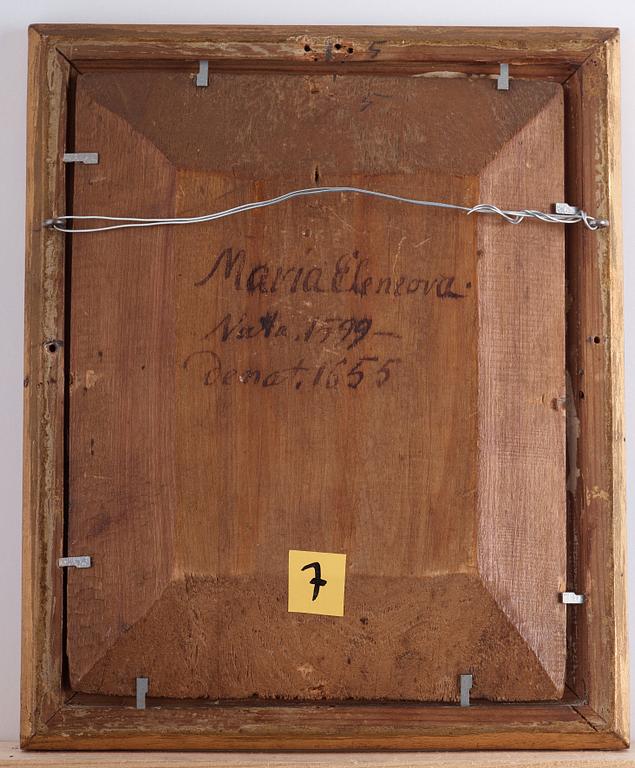 5
5
Maria Eleneova.
Nata. 1599 —
Denat. 1655
7